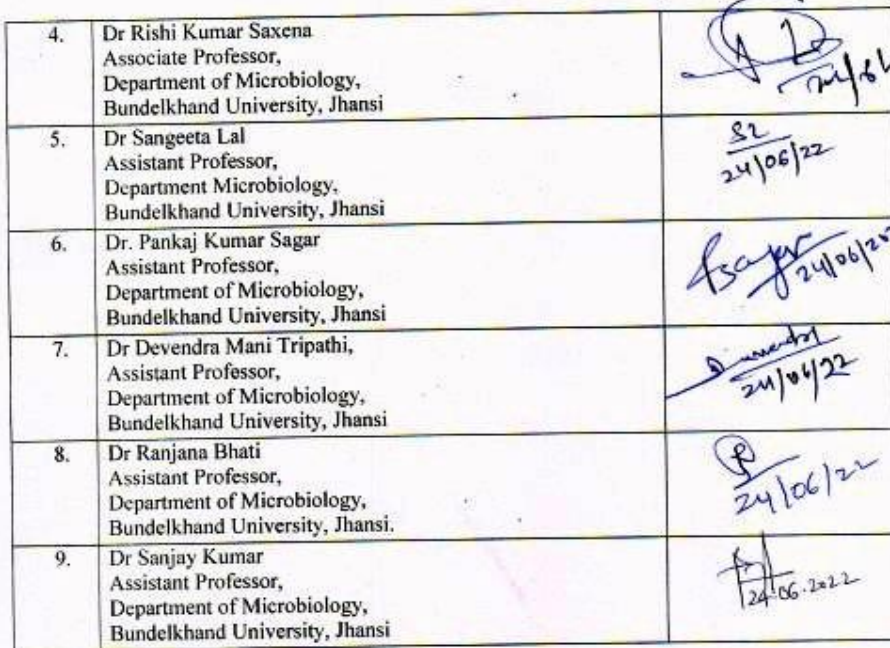 4. Dr Rishi Kumar Saxena
Associate Professor,
Department of Microbiology,
Bundelkhand University, Jhansi
5. Dr Sangeeta Lal
Assistant Professor,
Department Microbiology,
Bundelkhand University, Jhansi
SL
24/06/22
6. Dr. Pankaj Kumar Sagar
Assistant Professor,
Department of Microbiology,
Bundelkhand University, Jhansi
Psagar
24/06/202
7. Dr Devendra Mani Tripathi,
Assistant Professor,
Department of Microbiology,
Bundelkhand University, Jhansi
24/06/22
8. Dr Ranjana Bhati
Assistant Professor,
Department of Microbiology,
Bundelkhand University, Jhansi.
R
24/06/22
9. Dr Sanjay Kumar
Assistant Professor,
Department of Microbiology,
Bundelkhand University, Jhansi
24.06.2022